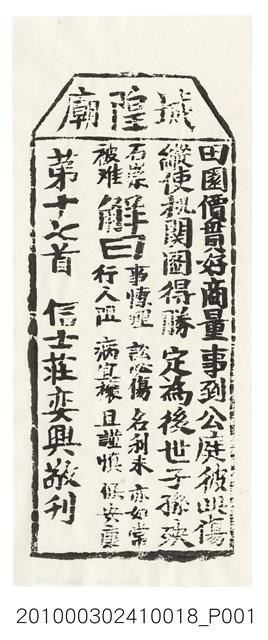 城隍廟
田園價貫好商量事到公庭彼此傷
縱使機關圖得勝定為後世子孫殃
石崇被难
解曰
事憑理 訟必傷 名利未 亦如常
行人阻 病宜禳 且謹慎 保安康
第十七首 信士莊奕興敬刊
201000302410018_P001